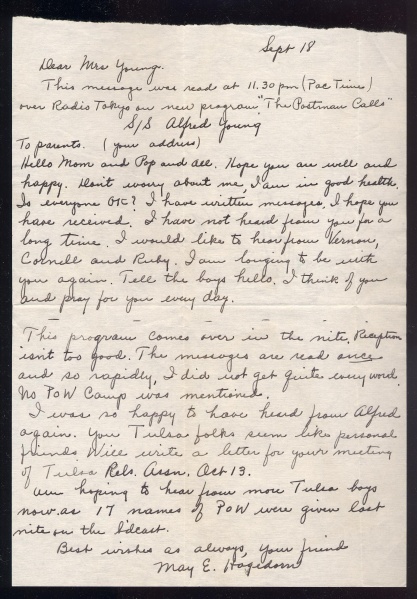 Sept 18
Dear Mrs Young.
This message was read at 11.30 pm (Pac Time)
over Radio Tokyo on new program "The Postman Calls"
S/S Alfred Young
To parents. (your address)
Hello Mom and Pop and all. Hope you are well and
happy. Don't worry about me, I am in good health.
Is everyone OK? I have written messages, I hope you
have received. I have not heard from you for a
long time. I would like to hear from Vernon,
Cornell and Ruby. I am longing to be with
you again. Tell the boys hello. I think of you
and pray for you every day.
This program comes over in the nite, Reception
isn't too good. The messages are read once
and so rapidly, I did not get quite every word.
No PoW Camp was mentioned.
I was so happy to have heard from Alfred
again. You Tulsa folks seem like personal
friends. Will write a letter for your meeting
of Tulsa Rels. Assn. Oct 13.
Am hoping to hear from more Tulsa boys
now. as 17 names of PoW were given last
nite on the bdcast.
Best wishes as always, your friend
May E. Hagedorn